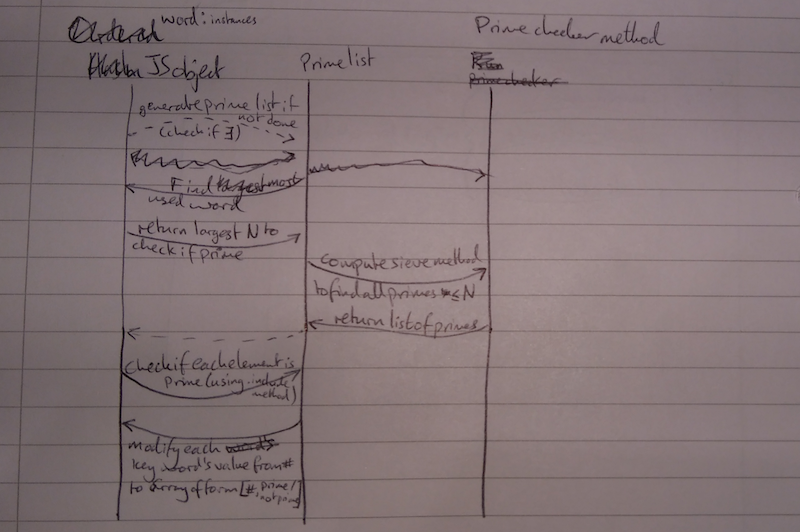 word: instances
Prime checker method
JS object
Prime list
prime checker
generate prime list if
not done
(check if ∃)
Find largest most
used word
return largest N to
check if prime
compute sieve method
to find all primes ≤ N
return list of primes
check if each element is
prime (using .include
method)
modify each word's
key word's value from #
to array of form [#, prime/
not prime]